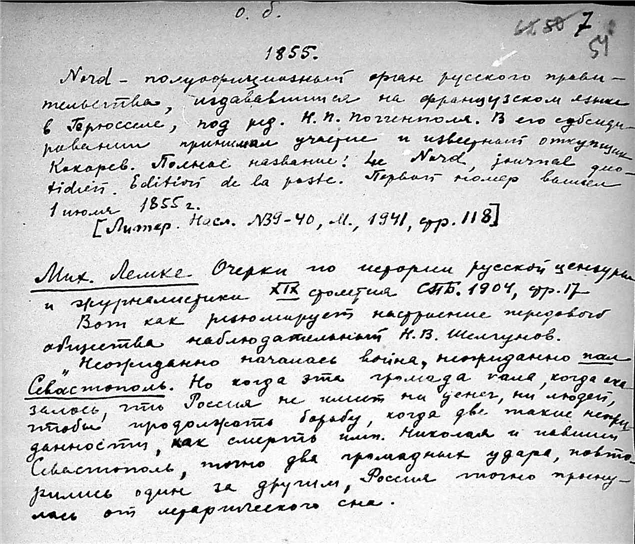 о. б.
7
51
1855.
Nord – полуофициозный орган русского прави-
тельства, издававшийся на французском языке
в Брюсселе, под ред. Н. П. Поггенполя. В его субсиди-
ровании принимал участие и известный откупщик
Кокарев. Полное название: Le Nord, journal quo-
tidien. Edition de la poste. Первый номер вышел
1 июля 1855 г.
[Литер. Насл. №39-40, М., 1941, стр. 118]
Мих. Лемке. Очерки по истории русской цензуры
и журналистики XIX столетия СПБ. 1904, стр. 17
Вот как резюмирует настроение передового
общества наблюдательный Н. В. Шелгунов.
"Неожиданно началась война, неожиданно пал
Севастополь. Но когда эта громада пала, когда ока
залось, что Россия не имеет ни денег, ни людей,
чтобы продолжать борьбу, когда две такие неожи
данности, как смерть имп. Николая и павший
Севастополь, точно два громадных удара, повто
рились один за другим, Россия точно просну-
лась от летаргического сна.